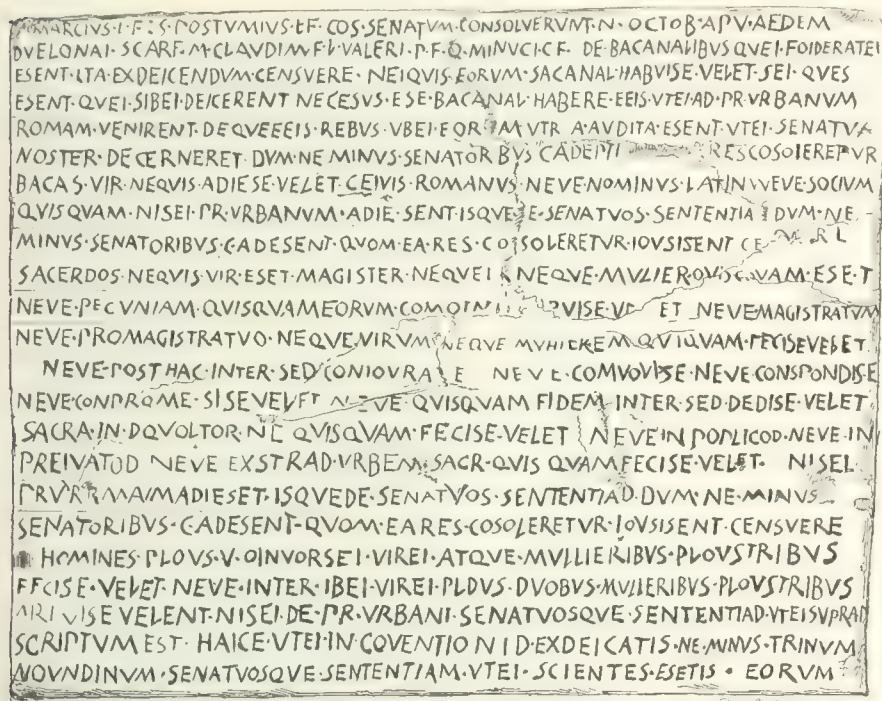 MARCIUS·L·F·S·POSTVMIVS·L·F·COS·SENATVM·CONSOLVERVNT·N·OCTOB·APV·AEDEM
DVELONAI·SCARF·M·CLAVDI M·F·L·VALERI·P·F·Q·MINVCI·C·F· DE·BACANALIBVS QVEI·FOIDERATEI
ESENT·ITA·EXDEICENDVM·CENSVERE· NEIQVIS·EORVM·SACANAL·HABVISE·VELET·SEI·QVES
ESENT·QVEI·SIBEI·DEICERENT NECESVS·ESE·BACANAL·HABERE·EEIS·VTEI·AD·PR·VRBANVM
ROMAM·VENIRENT·DEQVEEEIS·REBVS·VBEI·EOR M VTR A·AVDITA·ESENT·VTEI·SENATVS
NOSTER·DECERNERET·DVM·NE MINVS·SENATOR BVS CADE RESCOSOLERETVR
BACAS·VIR·NEQVIS·ADIESE·VELET·CEIVIS·ROMANVS·NEVE·NOMINVS·LATIN NEVE·SOCIVM
QVISQVAM·NISEI·PR·VRBANVM·ADIE·SENT·ISQVE E·SENATVOS·SENTENTIA DVM·NE
MINVS·SENATORIBVS·CADESENT·QVOM·EA·RES·COSOLERETVR·IOVSISENT CE
SACERDOS·NEQVIS·VIR·ESET·MAGISTER·NEQVEI NEQVE·MVLIER·QVISQVAM·ESE·T
NEVE·PECVNIAM·QVISQVAM EORVM·COMOIN VISE·V ET NEVE·MAGISTRATVM
NEVE·PROMAGISTRATVO·NEQVE·VIRVM·NEQVE QVIQVAM·FECISE·VELET·
NEVE·POST HAC·INTER·SED·CONIOVRA E NEVE·COMVOVISE·NEVE·CONSPONDISE
NEVE·CONPROME·SISE·VELET NEVE·QVISQVAM FIDEM INTER·SED·DEDISE·VELET
SACRA·IN·DQVOLTOR·NE QVISQVAM·FECISE·VELET NEVE·IN POPLICOD·NEVE·IN
PREIVATOD NEVE EXSTRAD·VRBEM·SACR·QVIS QVAM FECISE·VELET· NISEI
ADIESET·ISQVEDE·SENATVOS·SENTENTIAD·DVM·NE·MINVS
SENATORIBVS·CADESENT·QVOM·EA·RES·COSOLERETVR·IOVSISENT·CENSVERE
HOMINES·PLOVS·V·OINVORSEI·VIREI·ATQVE·MVLLIERIBVS·PLOVSTRIBVS
FECISE·VELET·NEVE·INTER·IBEI·VIREI·PLOVS·DVOBVS·MVLIERIBVS·PLOVSTRIBVS
VISE VELENT·NISEI·DE·PR·VRBANI·SENATVOSQVE·SENTENTIAD·VTEI SVPRAD
SCRIPTVM EST· HAICE·VTEI·IN COVENTIONID·EXDEICATIS·NE·MINVS·TRINVM
NOVNDINVM·SENATVOSQVE·SENTENTIAM·VTEI·SCIENTES·ESETIS · EORVM